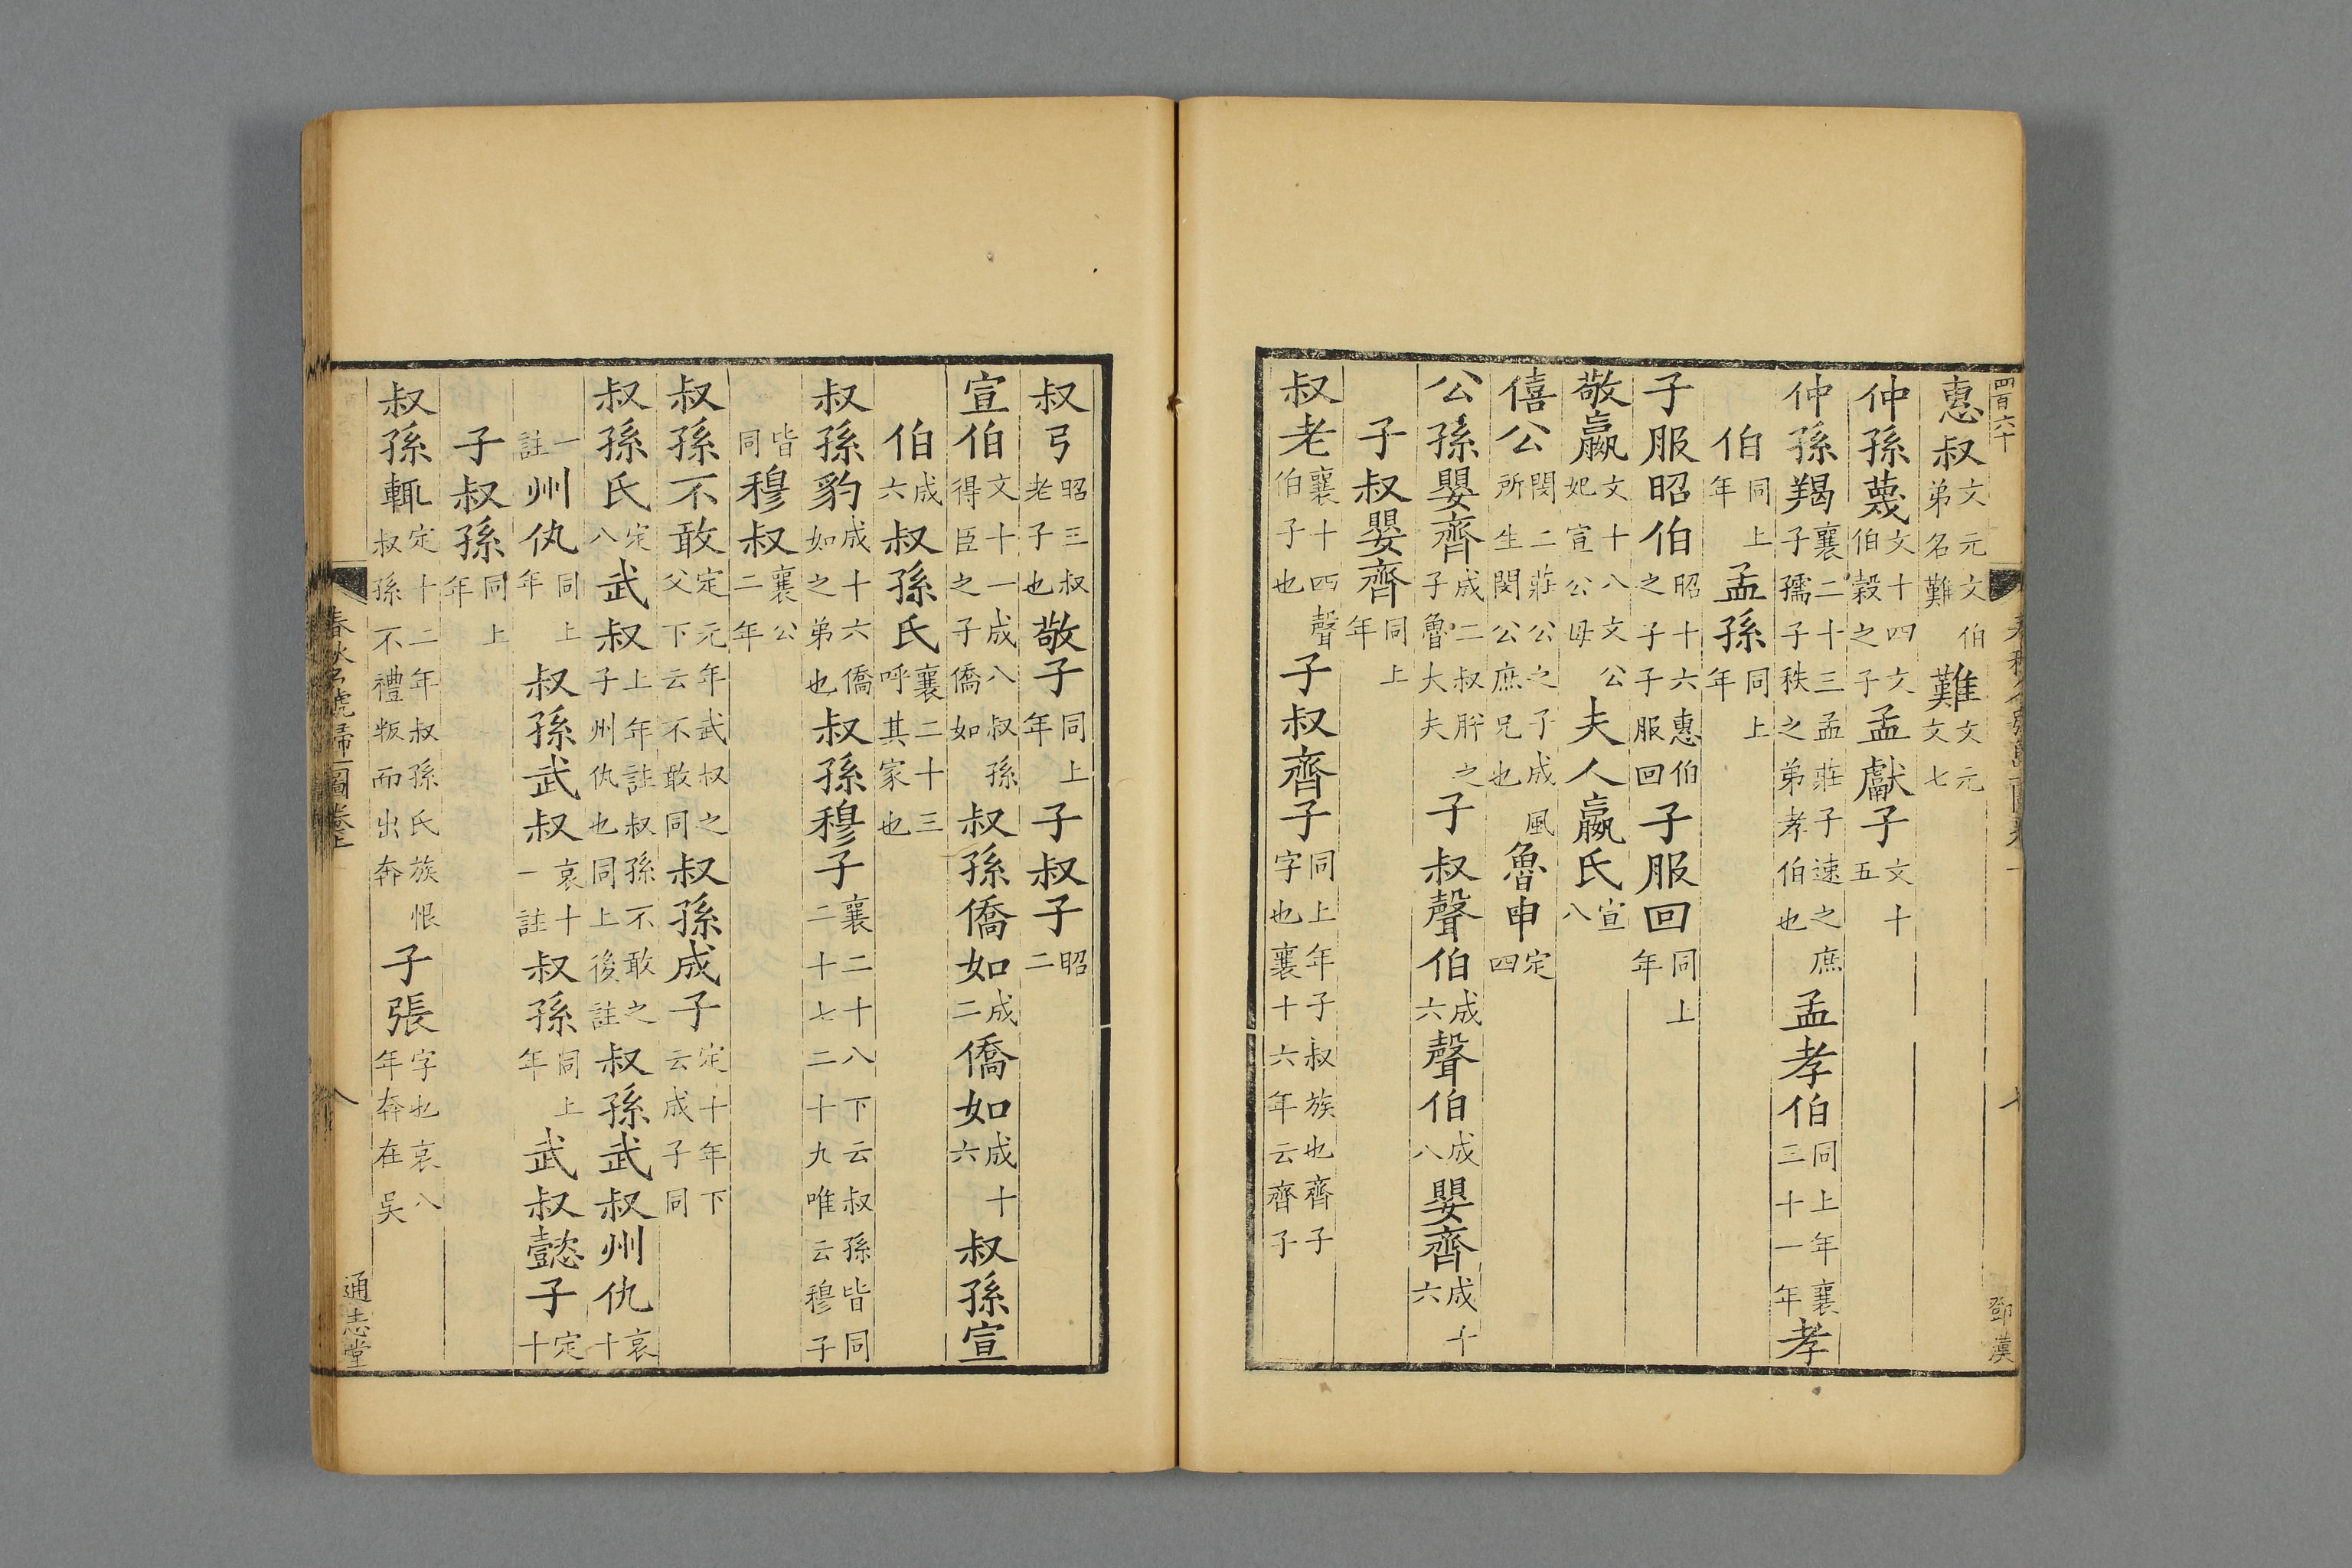 四百六十
惠叔文元文伯弟名難難文元文七
仲孫蔑文十四文伯穀之子孟獻子文十五
仲孫羯襄二十三孟莊子速之庶子孺子秩之弟孝伯也孟孝伯同上年襄三十一年孝
伯同上年孟孫同上年
子服昭伯昭十六惠伯之子子服回子服回同上年
敬嬴文十八文公妃宣公母夫人嬴氏宣八
僖公閔二莊公之子成風所生閔公庶兄也魯申定四
公孫嬰齊成二叔肸之子魯大夫子叔聲伯成六聲伯成八嬰齊成十六
子叔嬰齊同上年
叔老襄十四聲伯子也子叔齊子同上年子叔族也齊子字也襄十六年云齊子
鄧漢
叔弓昭三叔老子也敬子同上年子叔子昭二
宣伯文十一成八叔孫得臣之子僑如叔孫僑如成二僑如成十六叔孫宣
伯成六叔孫氏襄二十三呼其家也
叔孫豹成十六僑如之弟也叔孫穆子襄二十八下云叔孫皆同二十七二十九唯云穆子
皆同穆叔襄公二年
叔孫不敢定元年武叔之父下云不敢同叔孫成子定十年下云成子同
叔孫氏定八武叔上年註叔孫不敢之子州仇也同上後註叔孫武叔州仇哀十
一註州仇同上年叔孫武叔哀十一註叔孫同上年武叔懿子定十
子叔孫同上年
叔孫輒定十二年叔孫氏族恨叔孫不禮叛而出奔子張字也哀八年奔在吳
春秋名號歸一圖卷上
八
通志堂